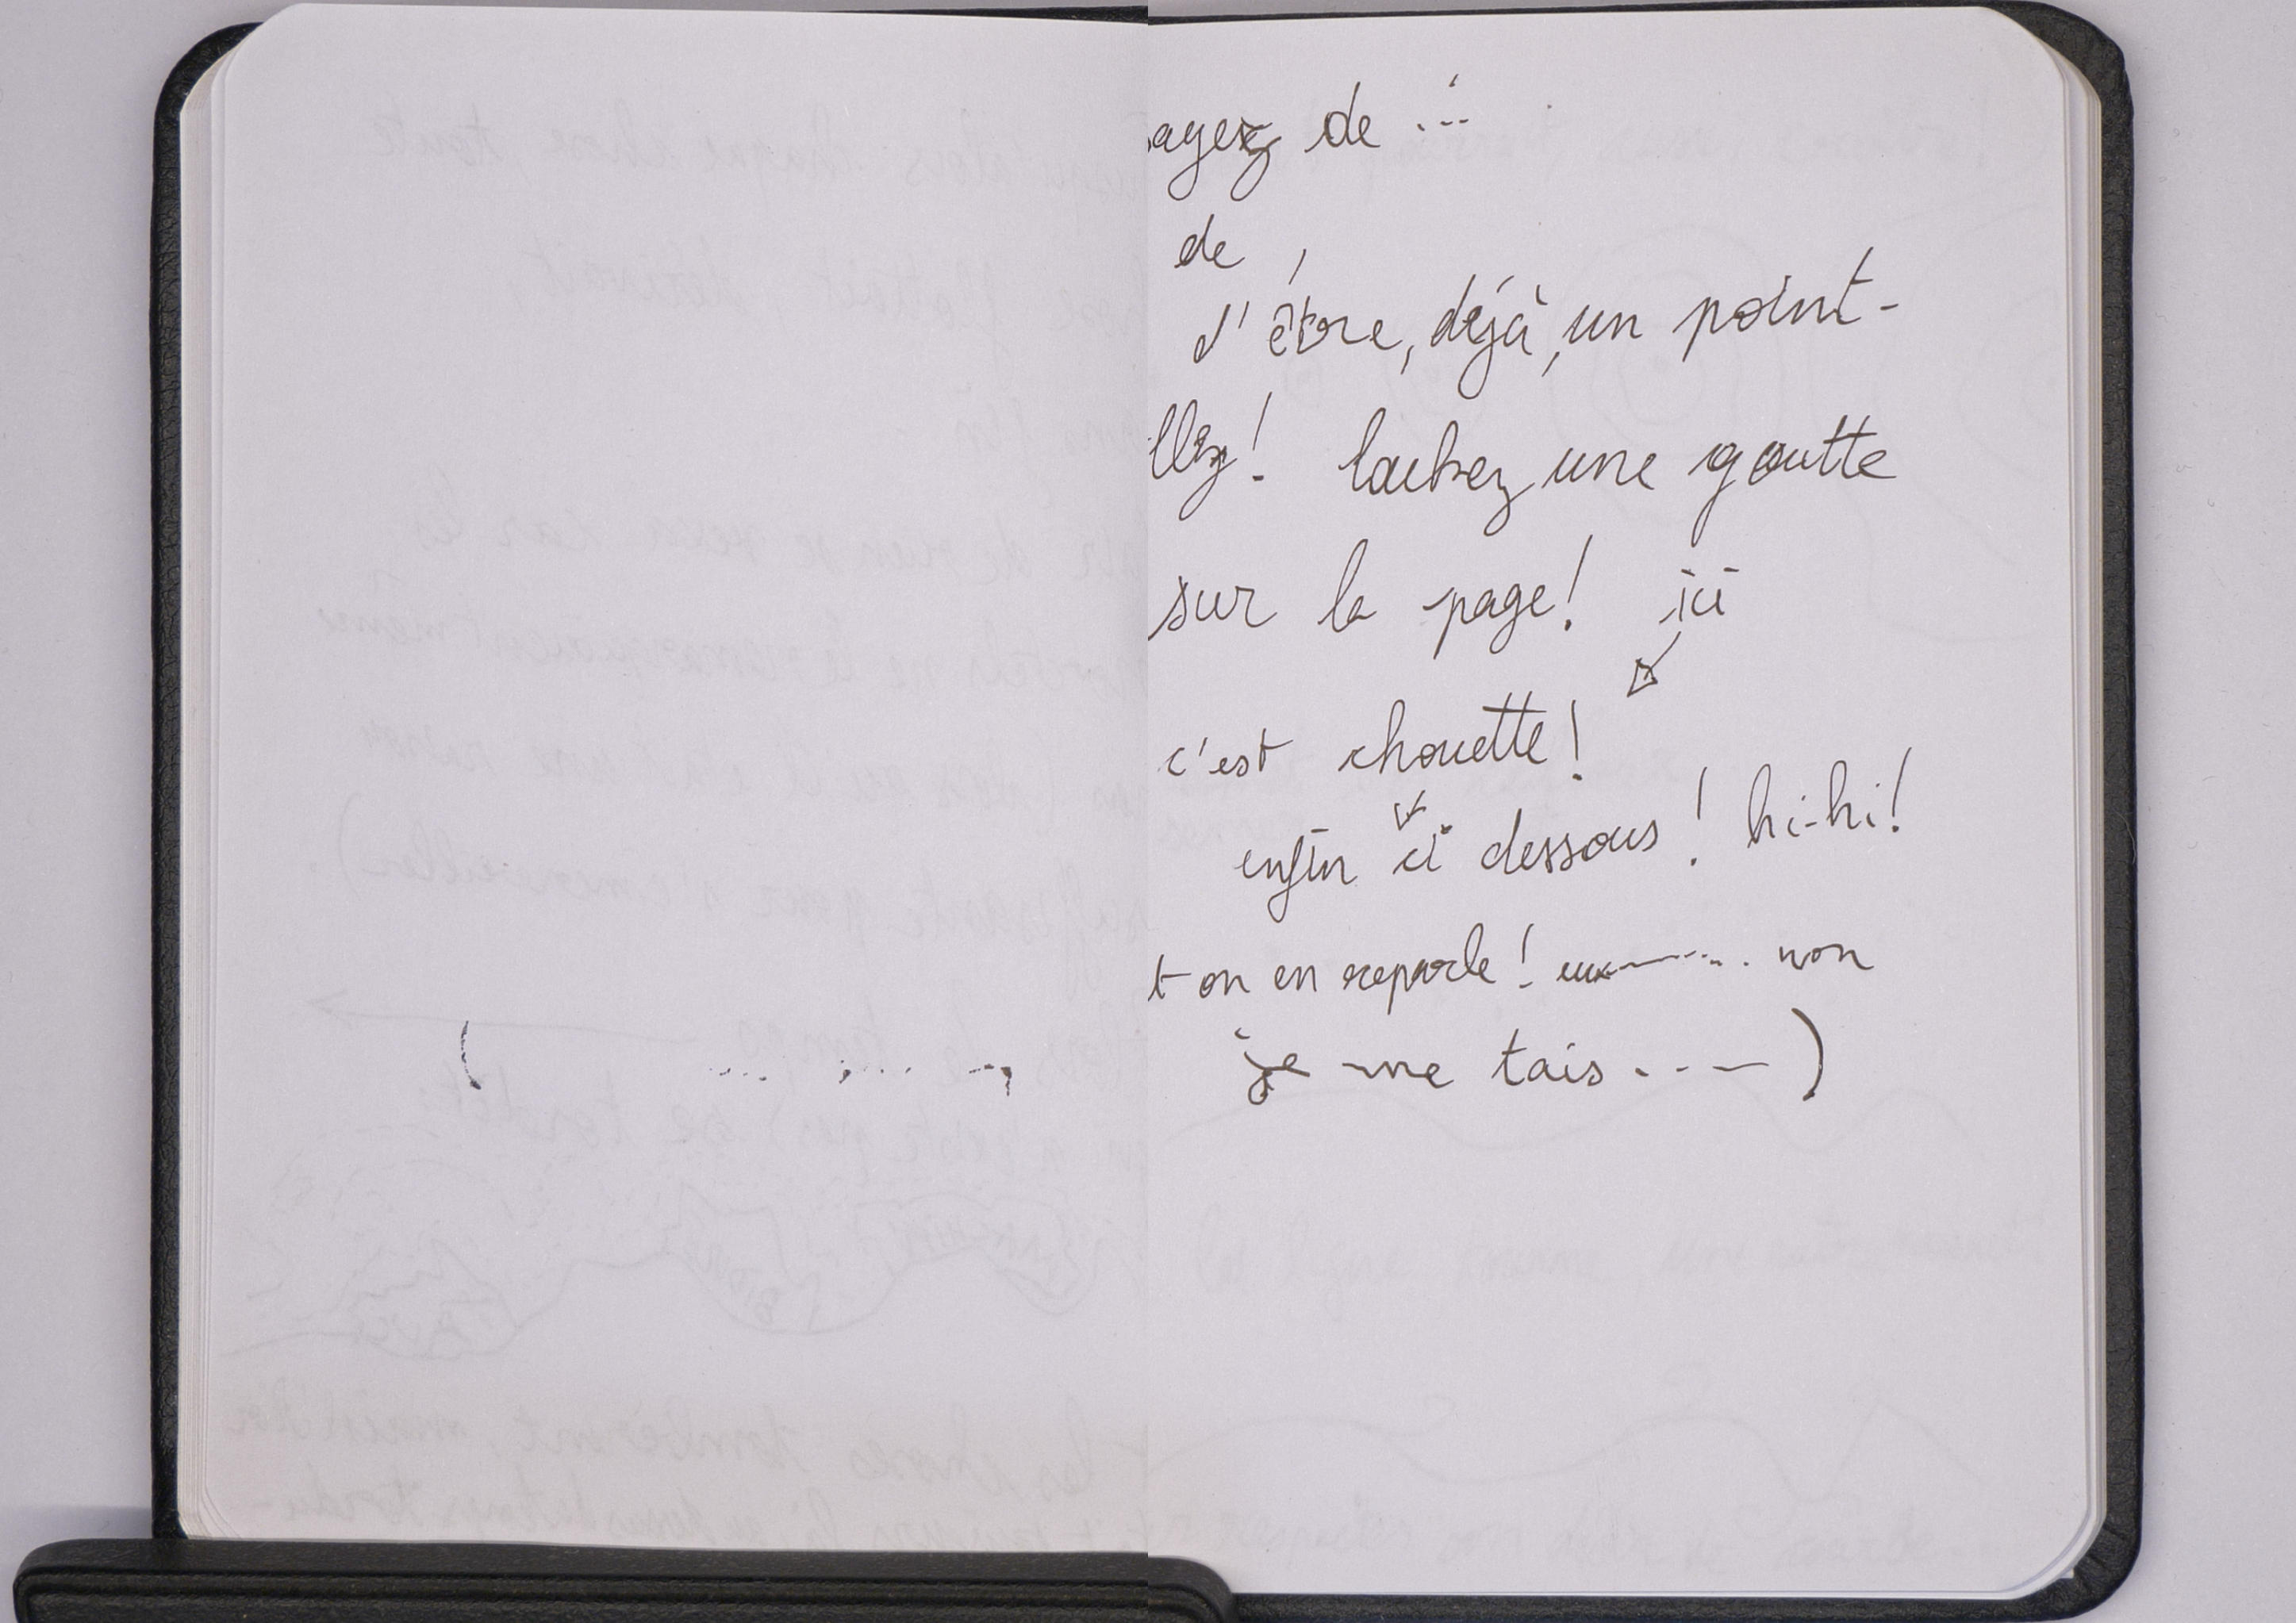 ayez de ...
de
d'être, déjà, un point-
llez! lachez une goutte
sur la page! ici
c'est chouette!
enfin ci dessous! hi-hi!
t on en reparle! non
je me tais . - - — )